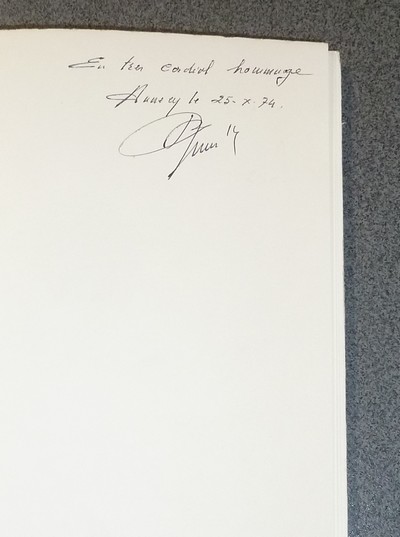 En très cordial hommage
Annecy le 25-X-74.